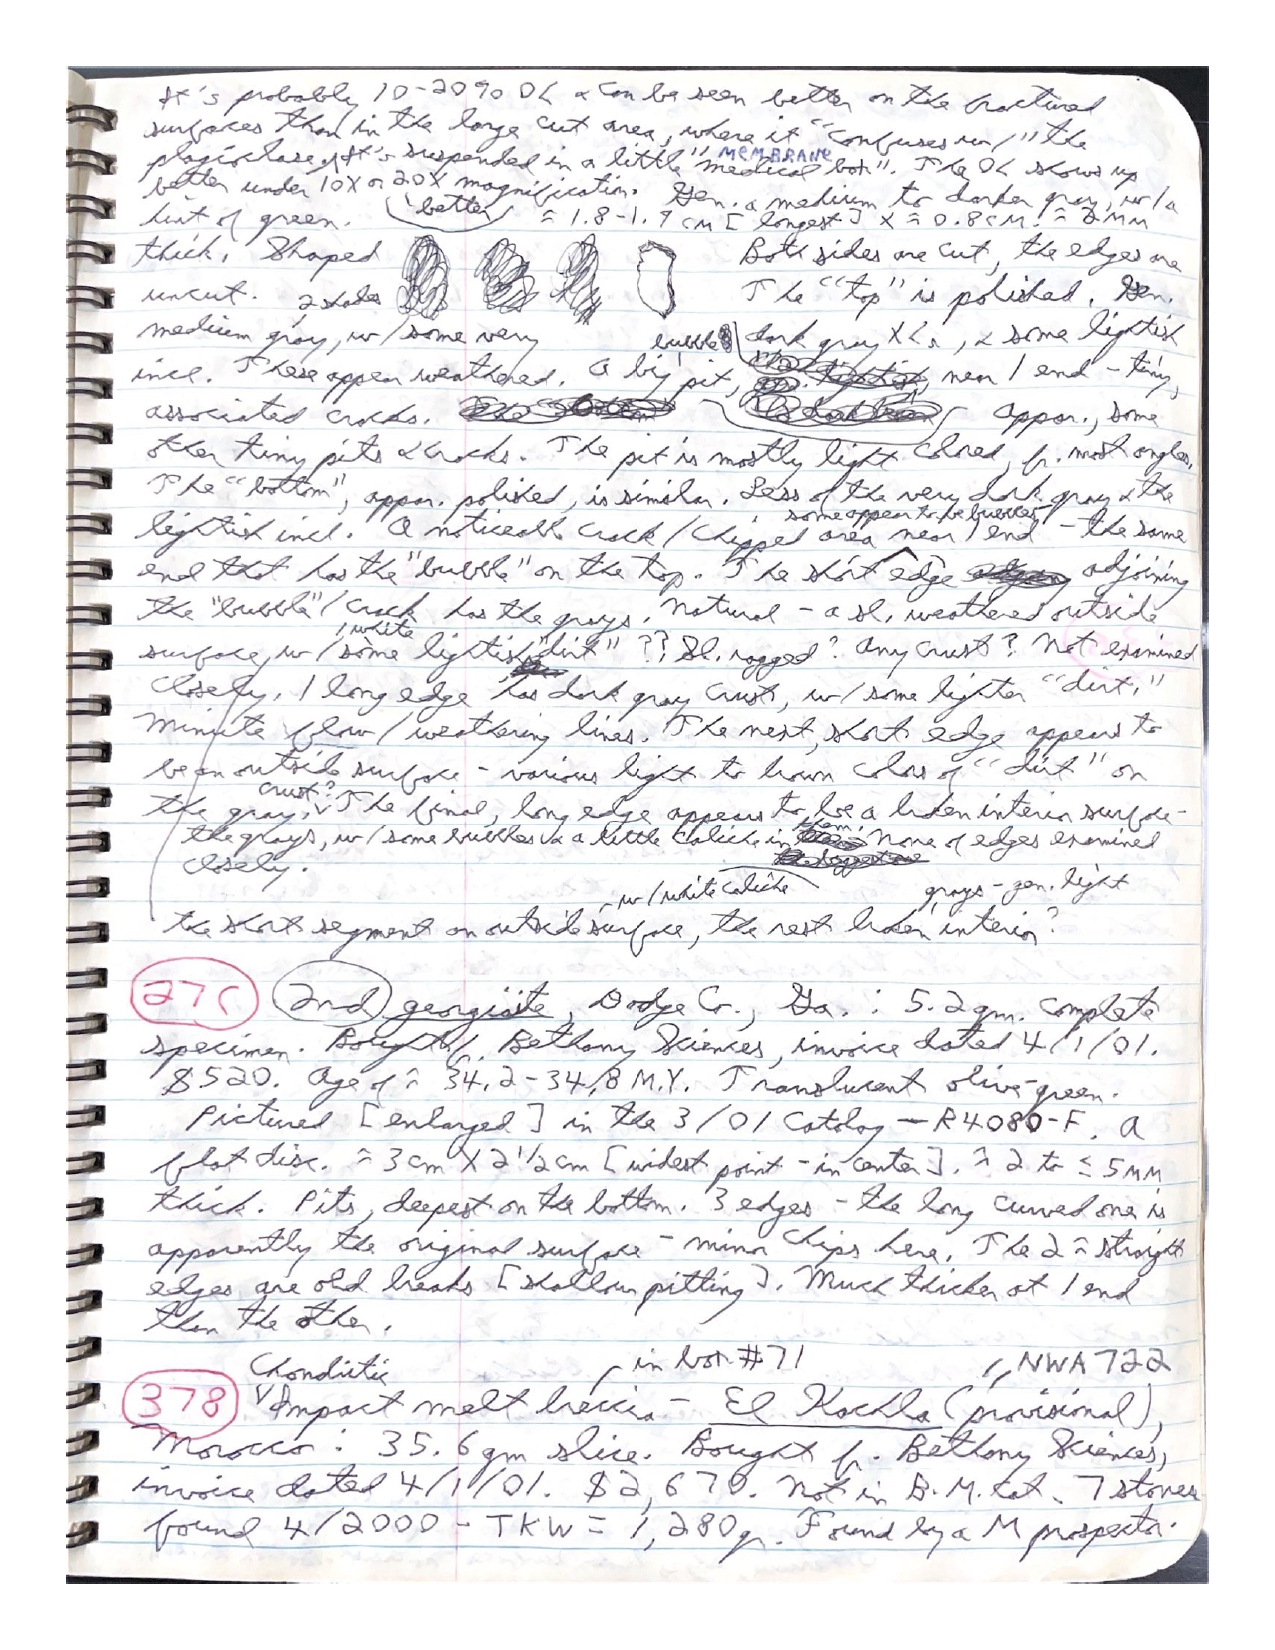 It's probably 10-20% OL & can be seen better on the fractured
surfaces than in the large cut area, where it "confuses w/" the
plagioclase. It's suspended in a little "medical box". The OL shows up
MEMBRANE
better under 10X or 20X magnification. Gen. a medium to darker gray, w/a
hint of green. better ≈ 1.8-1.9 cm [longest] X ≈ 0.8 cm. ≈ 2 mm
thick. Shaped Both sides are cut, the edges are
uncut. 2 shades The "top" is polished. Gen.
medium gray, w/some very bubble dark gray & some lightish
incl. These appear weathered. A big pit, near 1 end - tiny,
associated cracks. appar., some
other tiny pits & cracks. The pit is mostly light colored, f. most angles.
The "bottom", appar. polished, is similar. Less of the very dark gray & the
some appear to be bubbles
lightish incl. A noticeable crack/chipped area near 1 end - the same
end that has the "bubble" on the top. The short edge adjoining
the "bubble"/crack has the grays. Natural - a sl. weathered outside
white
surface, w/some lightish "dirt"?? Sl. ragged? Any crust? Not examined
closely. 1 long edge has dark gray crust, w/some lighter "dirt."
Minute flow/weathering lines. The next, short edge appears to
be an outside surface - various light to brown colors of "dirt" on
crust?
the gray. The final, long edge appears to be a broken interior surface -
the grays, w/some bubbles & a little caliche in them. None of edges examined
closely.
w/white caliche grays - gen. light
the short segment an outside surface, the rest broken interior?
2nd georgiaite, Dodge Co., Ga. : 5.2 gm. complete
specimen. Bought f. Bethany Sciences, invoice dated 4/1/01.
$520. Age of ≈ 34.2-34.8 M.Y. Translucent olive-green.
Pictured [enlarged] in the 3/01 Catalog - R4080-F. A
flat disc. ≈ 3 cm X 2 1/2 cm [widest point - in center]. ≈ 2 to ≤ 5 mm
thick. Pits, deepest on the bottom. 3 edges - the long curved one is
apparently the original surface - minor chips here. The 2 ≈ straight
edges are old breaks [shallow pitting]. Much thicker at 1 end
than the other.
Chondritic in box #71 NWA 722
378 Impact melt breccia - El Kachla (provisional),
Morocco : 35.6 gm slice. Bought f. Bethany Sciences,
invoice dated 4/1/01. $2,670. Not in B.M. Cat. 7 stones
found 4/2000 - TKW = 1,280g. Found by a M prospector.